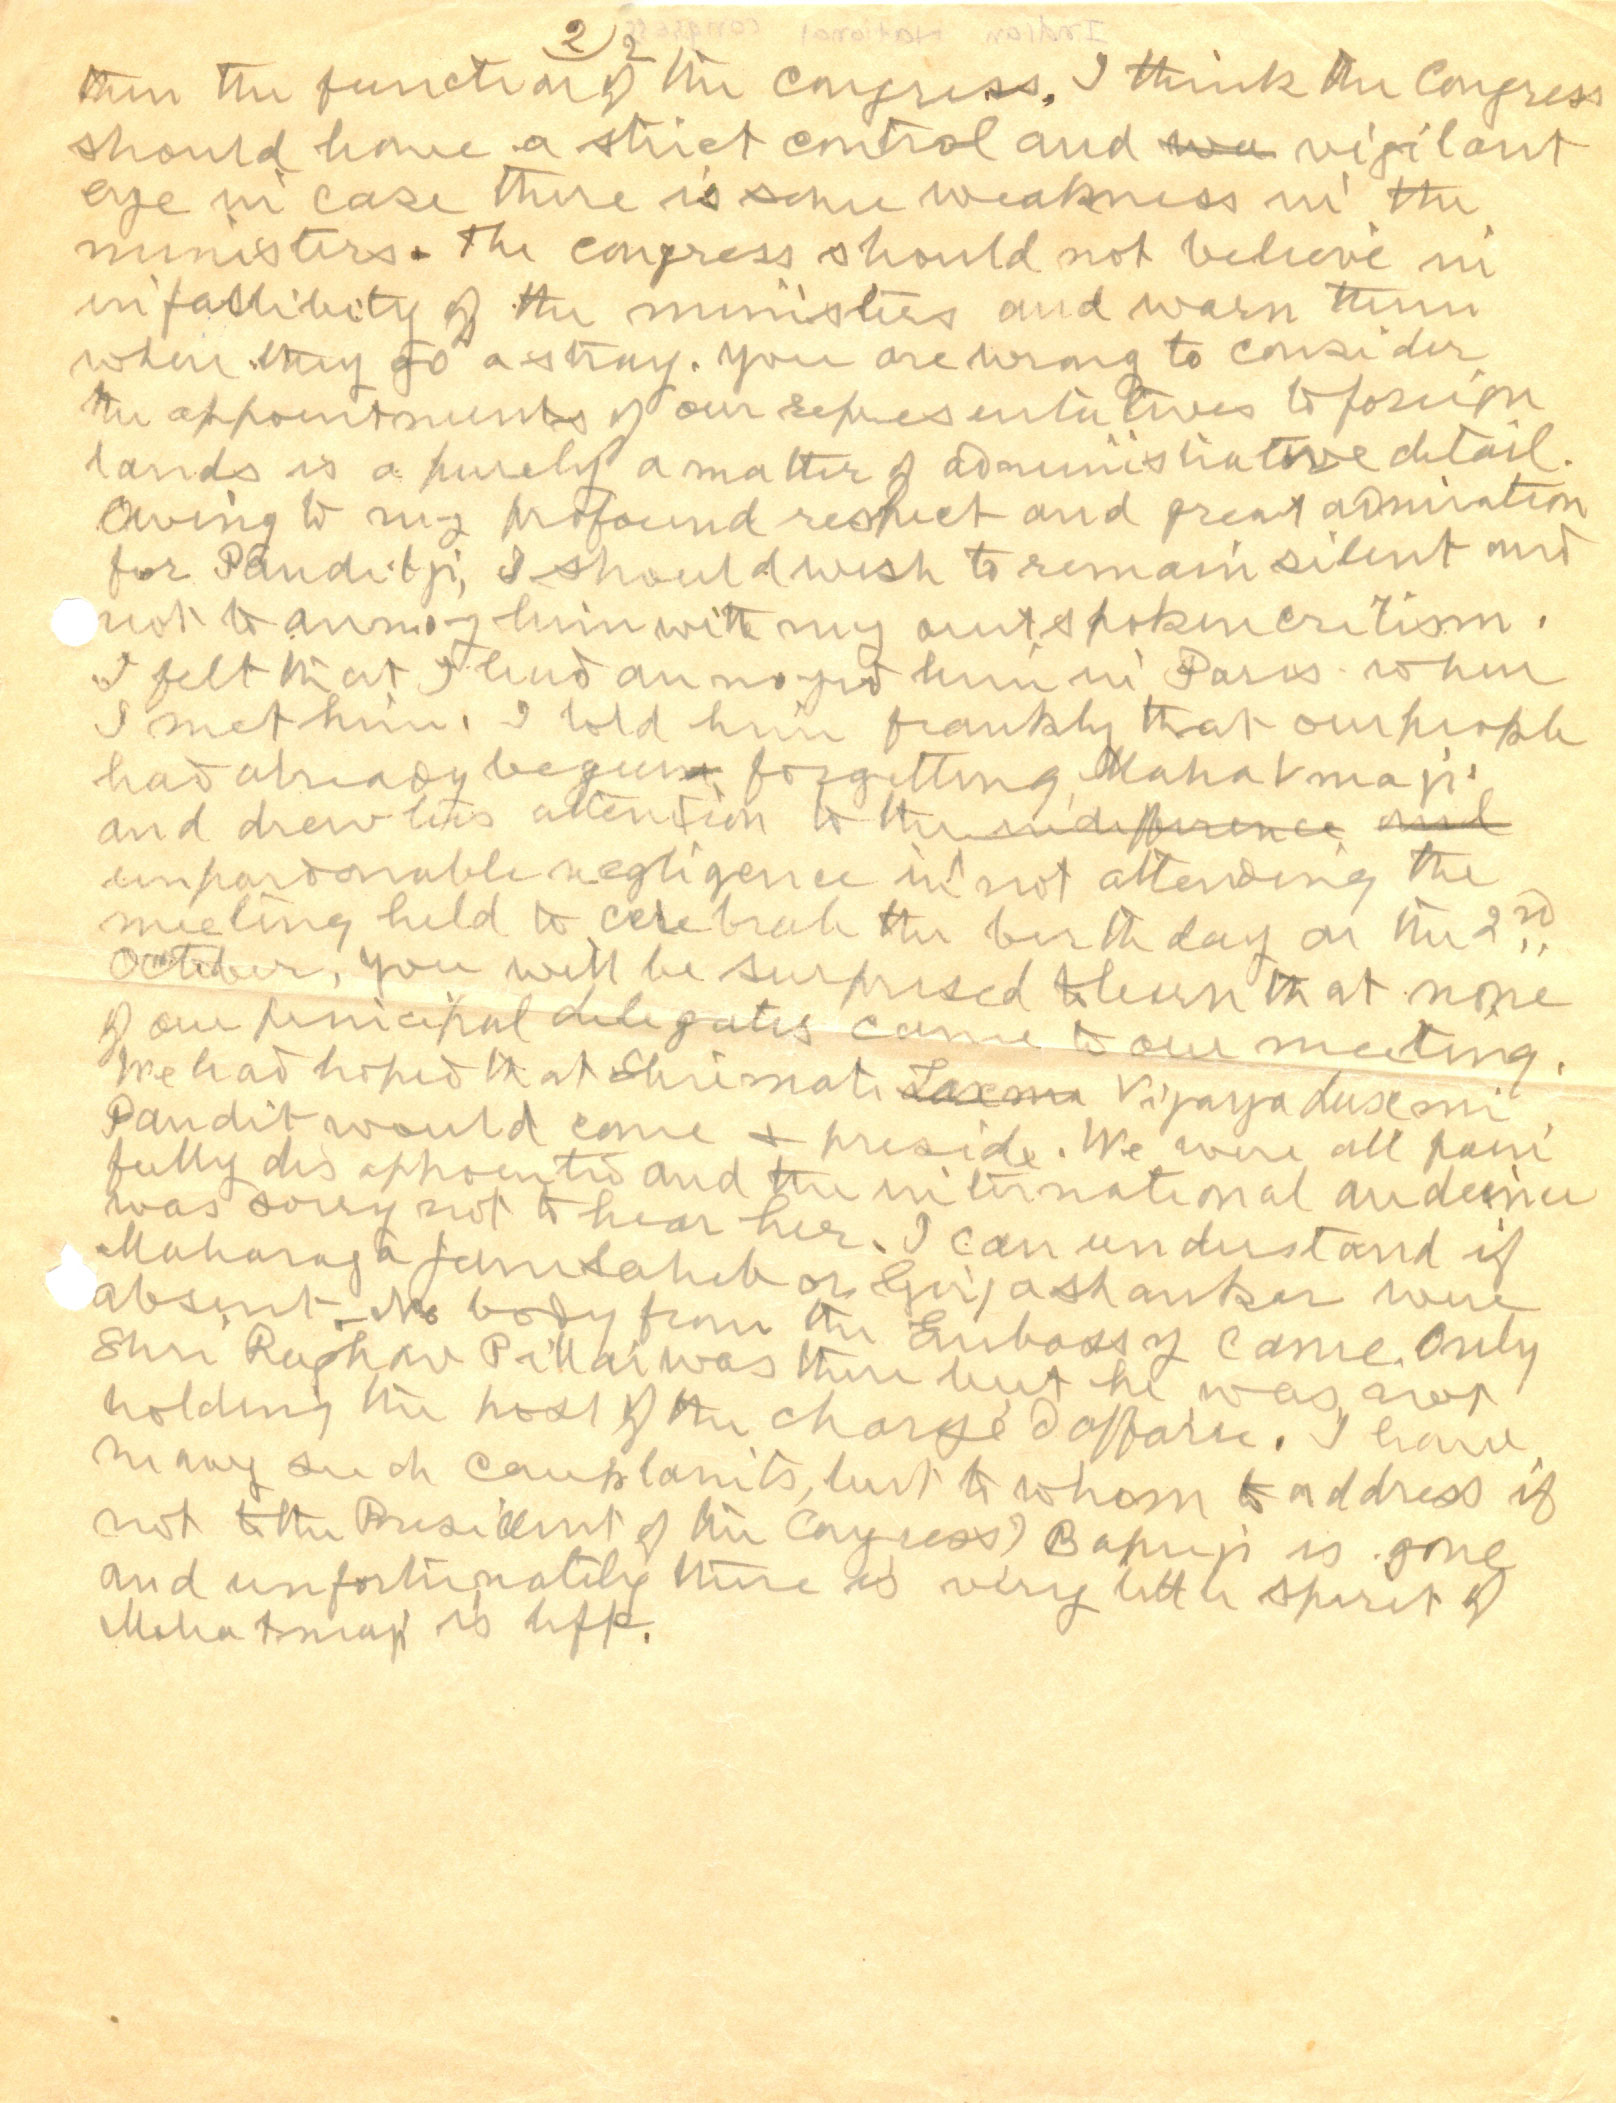 2) 2
then the function of the congress. I think the Congress
should have a strict control and vigilant
eye in case there is some weakness in the
ministers. The congress should not believe in
infallibity of the ministers and warn them
when they go astray. You are wrong to consider
the appointments of our representatives to foreign
lands is a purely a matter of administrative detail.
Owing to my profound respect and great admiration
for Panditji, I should wish to remain silent and
not to annoy him with my outspoken critism.
I felt that I had annoyed him in Paris when
I met him. I told him frankly that our people
had already begun forgetting Mahatmaji
and drew his attention to the indifference and
unpardonable negligence in not attending the
meeting held to celebrate the birthday on the 2nd
October, you will be surprised to learn that none
of our principal delegates came to our meeting.
We had hoped that Shrimati Laxma Vijaya Luxemi
Pandit would come + preside. We were all pain
fully disappointed and the international audeince
was sorry not to hear her. I can understand if
Maharaja Jamsaheb or Girjashanker were
absent. No body from the Embassy came. Only
Shri Raghav Pillai was there but he was not
holding the post of the chargé d'affaire. I have
many such complaints, but to whom to address if
not to the President of the Congress? Bapuji is gone
and unfortunately there is very little spirit of
Mahatmaji is left.
Indian National Congress